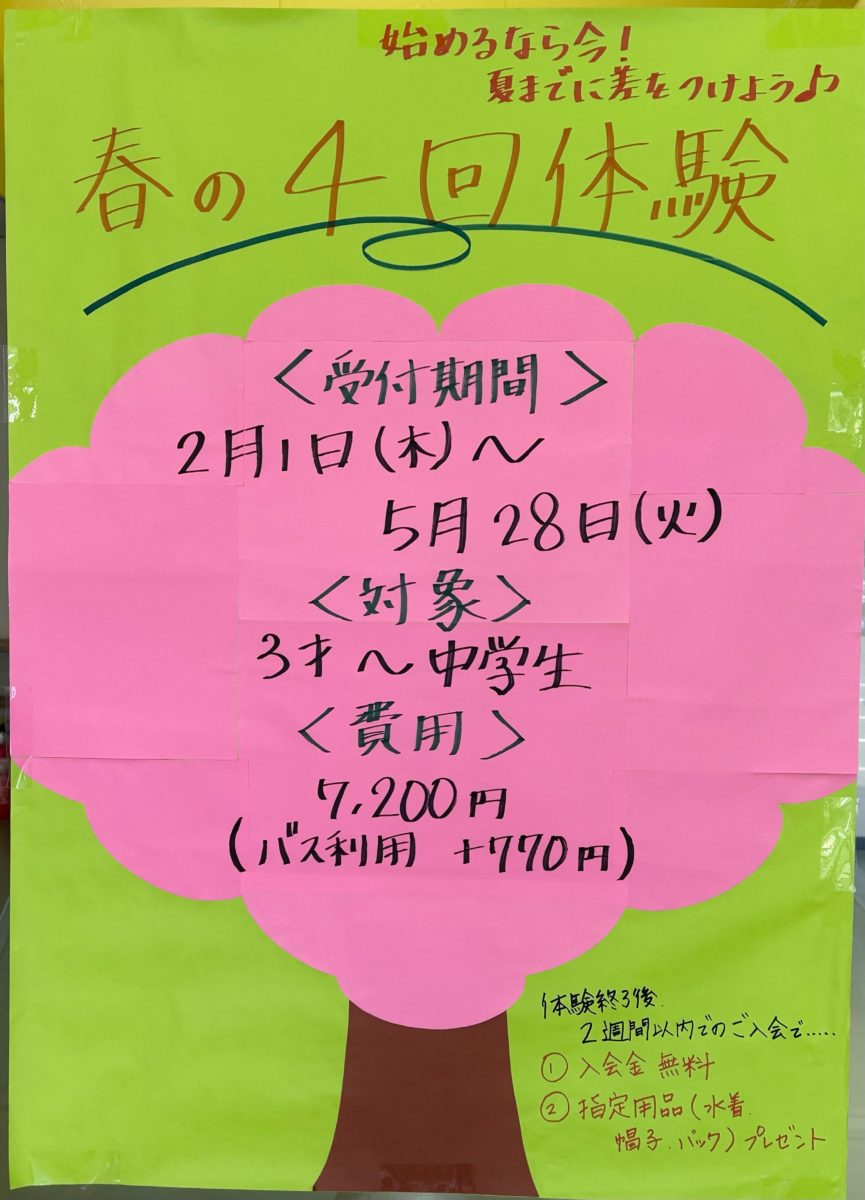 始めるなら今!
夏までに差をつけよう♪
春の4回体験
<受付期間>
2月1日(木)～
5月28日(火)
<対象>
3才～中学生
<費用>
7,200円
(バス利用 +770円)
体験終了後、
2週間以内でのご入会で.....
① 入会金 無料
② 指定用品(水着、
帽子、バック)プレゼント